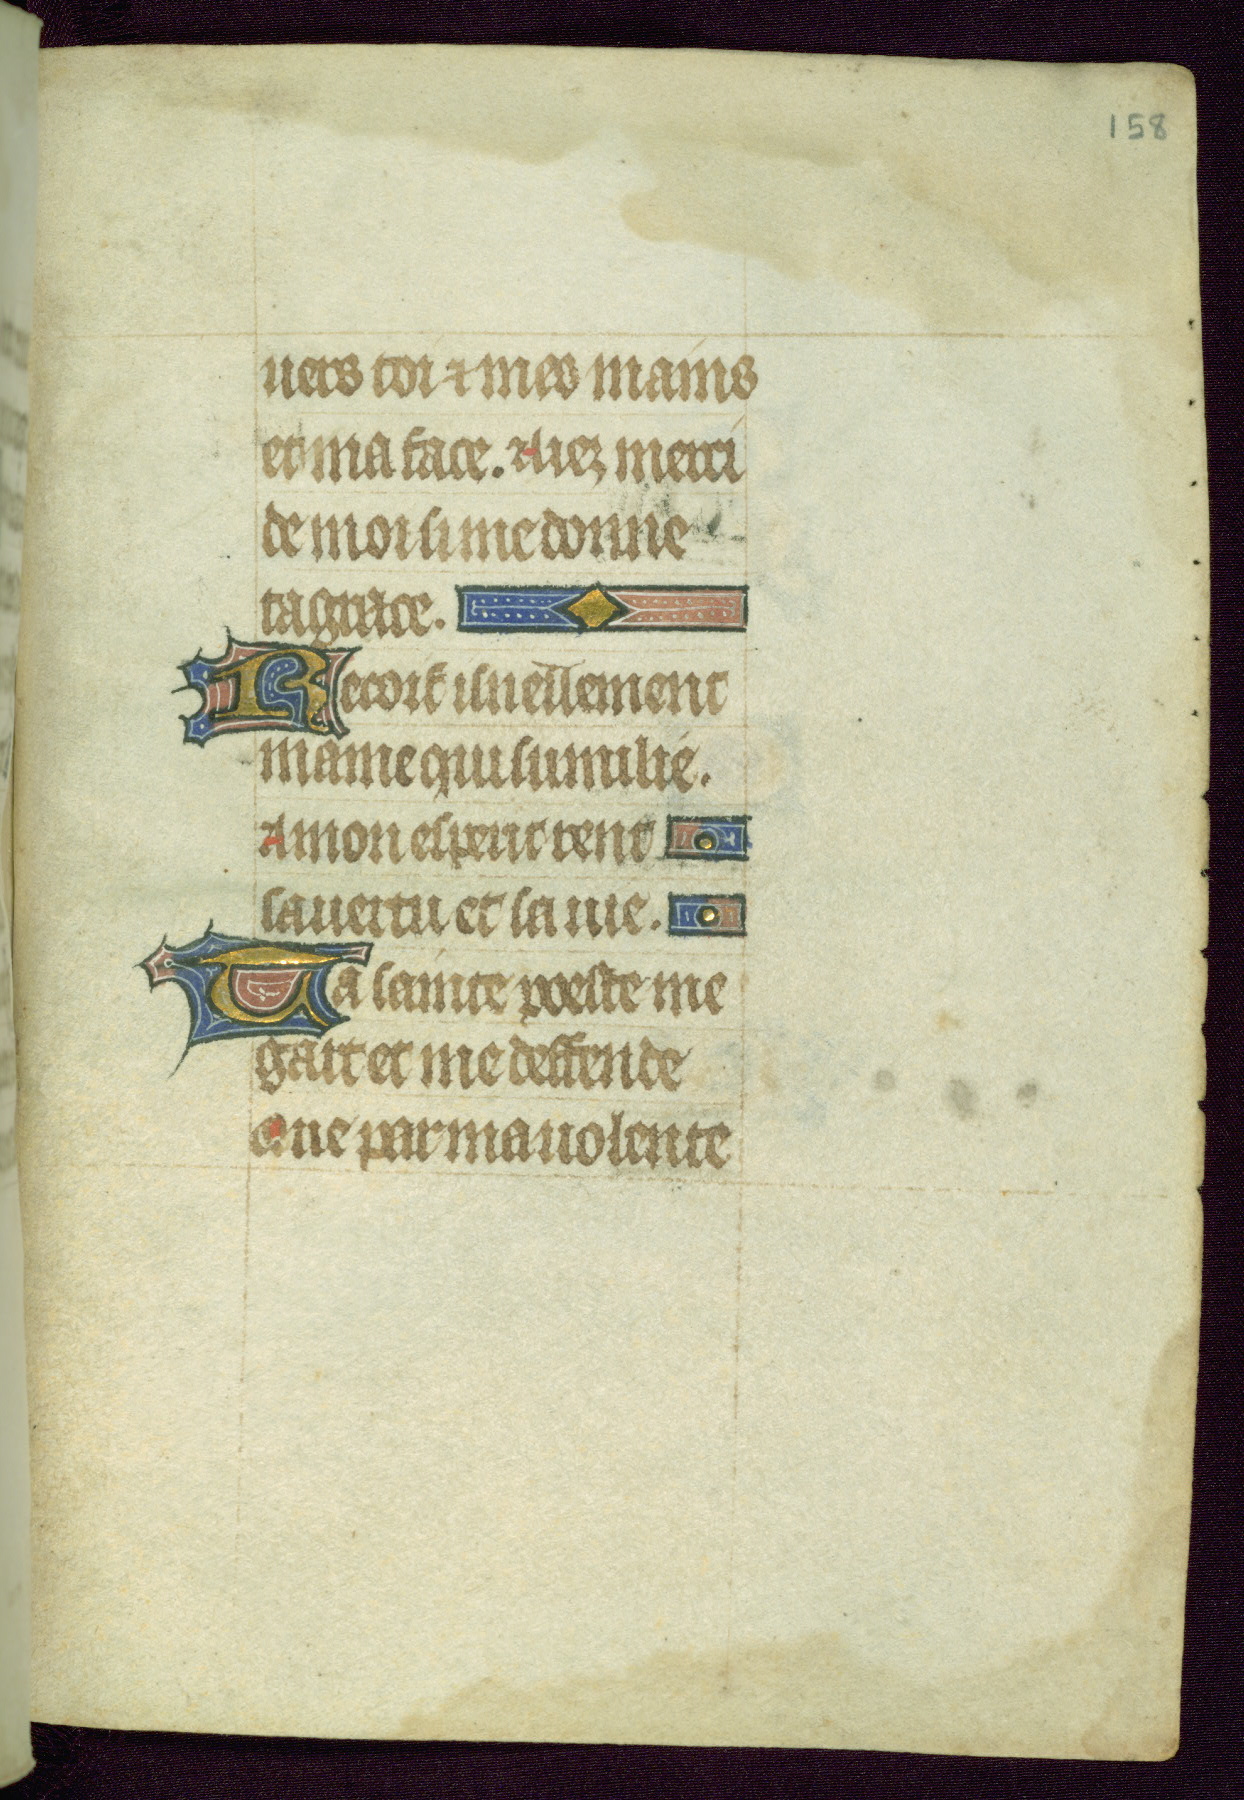 158
uers toi ⁊ mes mains
et ma face. Aiez merci
de moi si me donne
ta grace.
Recoif isnellement
mame qui sumilie.
A mon esperit rent
sa uertu et sa uie.
Ta sainte poeste me
gart et me deffende
Que par ma uolente